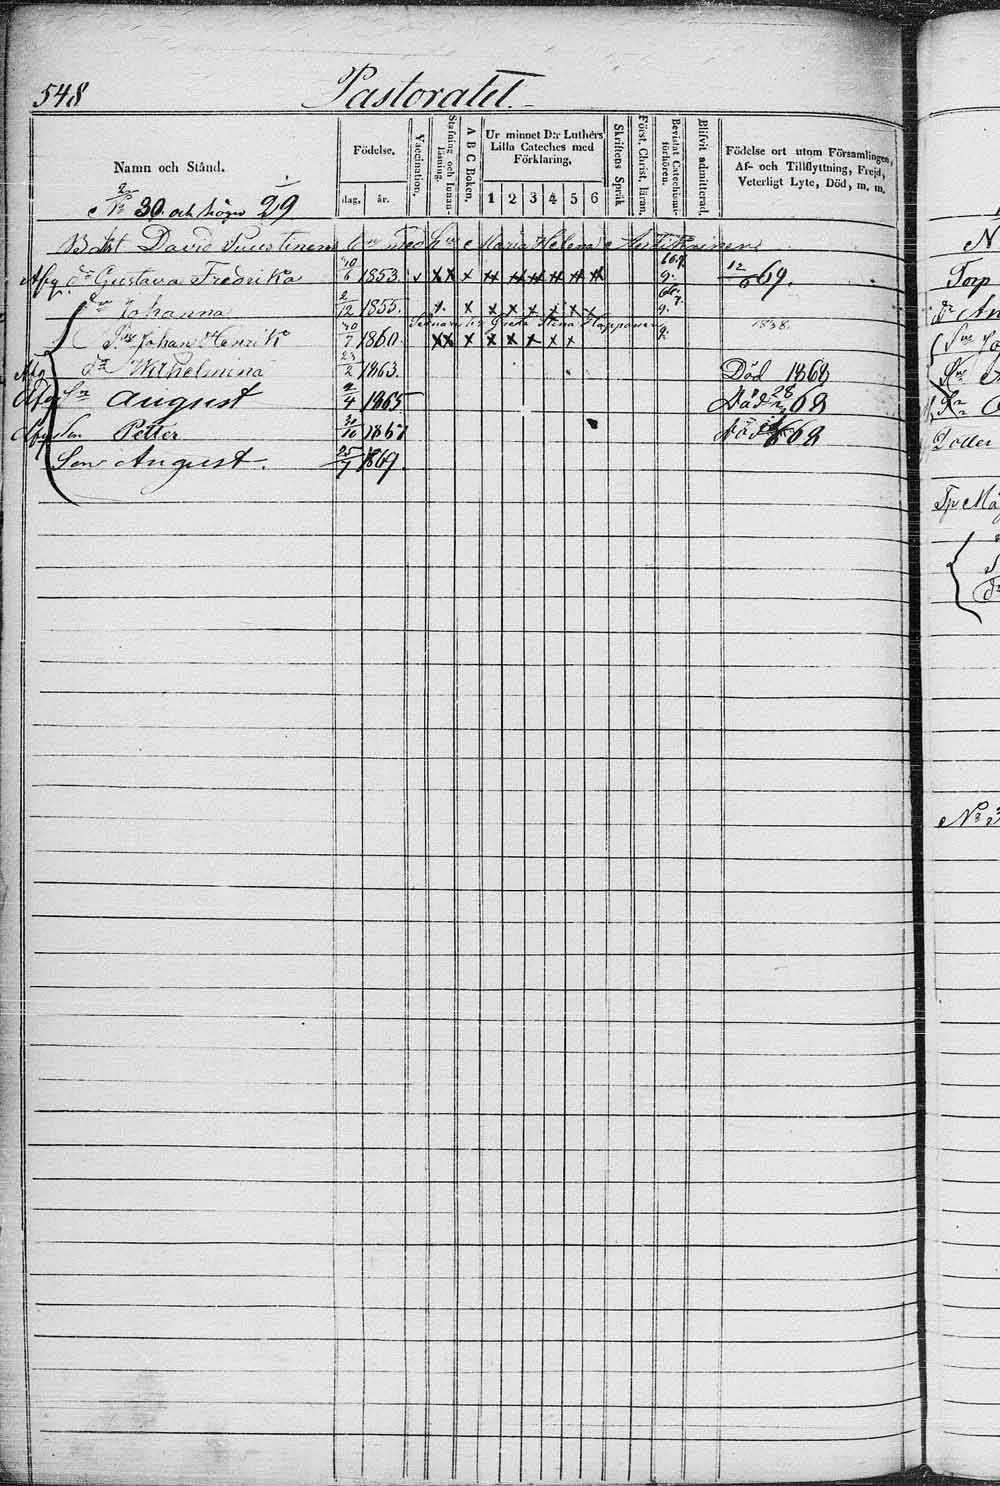 548 Pastoratet.
Namn och Stånd.
Födelse.
dag. år.
Vaccination.
Stafning och Innanläsning.
A B C Boken.
Ur minnet D:r Luthers Lilla Cateches med Förklaring.
1 2 3 4 5 6
Skriftens Språk
Först. Christ. läran.
Bevistat Catechismiförhören.
Blifvit admitterad.
Födelse ort utom Församlingen, Af- och Tillflyttning, Frejd, Veterligt Lyte, Död, m. m.
No 30 och högre 29
David med Maria Helena
Afg. dr Gustava Fredrika 30/6 1853. v xx x 12/6 69.
dr Johanna 2/12 1855. x x x x x x x
Greta Stina 1838.
Johan Henrik 30/7 1860 xx x x x x x x
Afg dr Wilhelmina 23/2 1863. Död 1868
Afg Sn August 2/4 1865 Död 28 68
Afg son Petter 30/10 1867 Död 68
Son August. 25/7 1869.
N
Torp
dr An
Doller
No 3